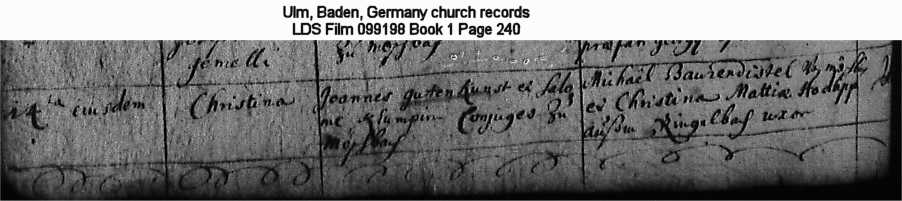 Ulm, Baden, Germany church records
LDS Film 099198 Book 1 Page 240
gemelli
zu Mösbach
14ta eiusdem
Christina
Joannes guttenKunst et Salo
me Klumpin Conjuges zu
Mösbach
Michaël Bauhendistel zu Mösb
et Christina Mattiæ Hodapp
außm Ringelbach uxor